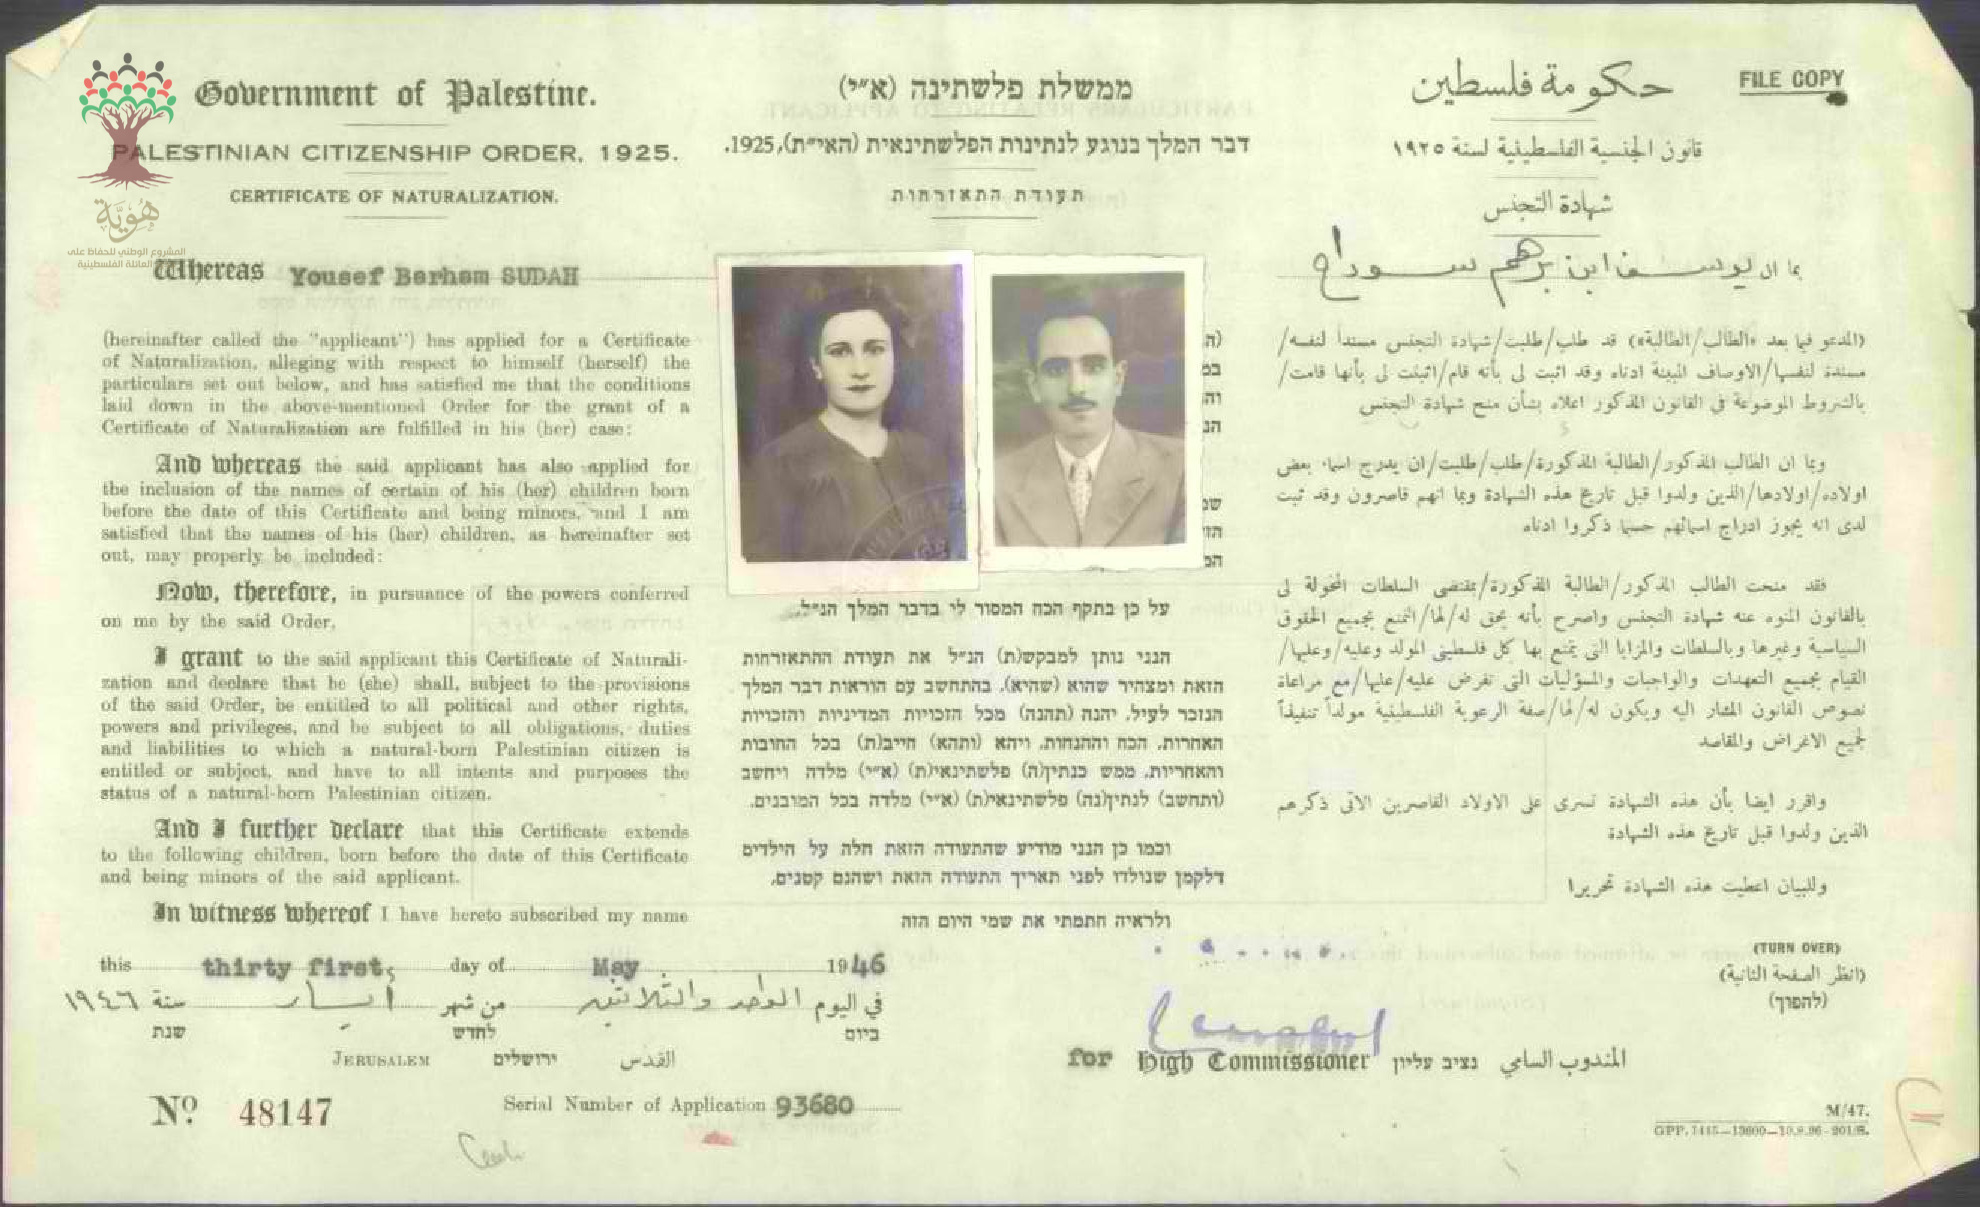 Government of Palestine.
PALESTINIAN CITIZENSHIP ORDER, 1925.
CERTIFICATE OF NATURALIZATION.
هوية
المشروع الوطني للحفاظ على
العائلة الفلسطينية
Whereas Yousef Barhem SUDAH
(hereinafter called the "applicant") has applied for a Certificate
of Naturalization, alleging with respect to himself (herself) the
particulars set out below, and has satisfied me that the conditions
laid down in the above-mentioned Order for the grant of a
Certificate of Naturalization are fulfilled in his (her) case:
And whereas the said applicant has also applied for
the inclusion of the names of certain of his (her) children born
before the date of this Certificate and being minors, and I am
satisfied that the names of his (her) children, as hereinafter set
out, may properly be included:
Now, therefore, in pursuance of the powers conferred
on me by the said Order,
I grant to the said applicant this Certificate of Naturali-
zation and declare that he (she) shall, subject to the provisions
of the said Order, be entitled to all political and other rights,
powers and privileges, and be subject to all obligations, duties
and liabilities to which a natural-born Palestinian citizen is
entitled or subject, and have to all intents and purposes the
status of a natural-born Palestinian citizen.
And I further declare that this Certificate extends
to the following children, born before the date of this Certificate
and being minors of the said applicant.
In witness whereof I have hereto subscribed my name
this thirty first, day of May 1946
ממשלת פלשתינה (א״י)
דבר המלך בנוגע לנתינות הפלשתינאית (האי״ת), 1925.
תעודת התאזרחות
על כן בתקף הכח המסור לי בדבר המלך הנ״ל,
הנני נותן למבקש(ת) הנ״ל את תעודת ההתאזרחות
הזאת ומצהיר שהוא (שהיא), בהתחשב עם הוראות דבר המלך
הנזכר לעיל, יהנה (תהנה) מכל הזכויות המדיניות והזכויות
האחרות, הכח וההנחות, ויהא (ותהא) חייב(ת) בכל החובות
והאחריות, ממש כנתין(ה) פלשתינאי(ת) (א״י) מלדה ויחשב
(ותחשב) לנתין(נה) פלשתינאי(ת) (א״י) מלדה בכל המובנים.
וכמו כן הנני מודיע שהתעודה הזאת חלה על הילדים
דלקמן שנולדו לפני תאריך התעודה הזאת ושהנם קטנים,
ולראיה חתמתי את שמי היום הזה
FILE COPY
حكومة فلسطين
قانون الجنسية الفلسطينية لسنة ١٩٢٥
شهادة التجنس
بما ان يوسف ابن برهم سوداح
(المدعو فيما بعد «الطالب/الطالبة») قد طلب/طلبت/شهادة التجنس مسنداً لنفسه/
مسندة لنفسها/الاوصاف المبينة ادناه وقد اثبت لى بأنه قام/اثبتت لى بأنها قامت/
بالشروط الموضوعة فى القانون المذكور اعلاه بشأن منح شهادة التجنس
وبما ان الطالب المذكور/الطالبة المذكورة/طلب/طلبت/ان يدرج اسماء بعض
اولاده/اولادها/الذين ولدوا قبل تاريخ هذه الشهادة وبما انهم قاصرون وقد ثبت
لدى انه يجوز ادراج اسمائهم حسبما ذكروا ادناه
فقد منحت الطالب المذكور/الطالبة المذكورة/بمقتضى السلطات المخولة لى
بالقانون المنوه عنه شهادة التجنس واصرح بأنه يحق له/لها/التمتع بجميع الحقوق
السياسية وغيرها وبالسلطات والمزايا التى يتمتع بها كل فلسطينى المولد وعليه/وعليها/
القيام بجميع التعهدات والواجبات والمسؤليات التى تفرض عليه/عليها/مع مراعاة
نصوص القانون المشار اليه ويكون له/لها/صفة الرعوية الفلسطينية مولداً تنفيذاً
لجميع الاغراض والمقاصد
واقرر ايضا بأن هذه الشهادة تسرى على الاولاد القاصرين الآتى ذكرهم
الذين ولدوا قبل تاريخ هذه الشهادة
وللبيان اعطيت هذه الشهادة تحريرا
(TURN OVER)
(انظر الصفحة الثانية)
(להפוך)
في اليوم الواحد والثلاثين من شهر أيار سنة ١٩٤٦
ביום לחדש שנת
JERUSALEM ירושלים القدس
for High Commissioner נציב עליון المندوب السامي
No. 48147
Serial Number of Application 93680
M/47.